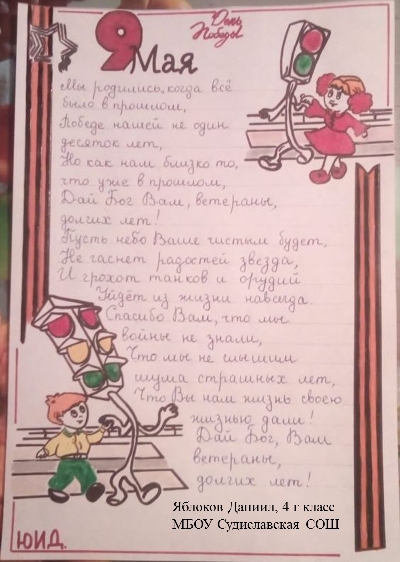 День
Победы
9 Мая
Мы родились, когда всё
было в прошлом,
Победе нашей не один
десяток лет,
Но как нам близко то,
что уже в прошлом,
Дай Бог Вам, ветераны,
долгих лет!
Пусть небо Ваше чистым будет,
Не гаснет радостей звезда,
И грохот танков и орудий
Уйдёт из жизни навсегда.
Спасибо Вам, что мы
войны не знали,
Что мы не слышим
шума страшных лет,
Что Вы нам жизнь своею
жизнью дали!
Дай Бог, Вам
ветераны,
долгих лет!
ЮИД.
Яблоков Даниил, 4 г класс
МБОУ Судиславская СОШ